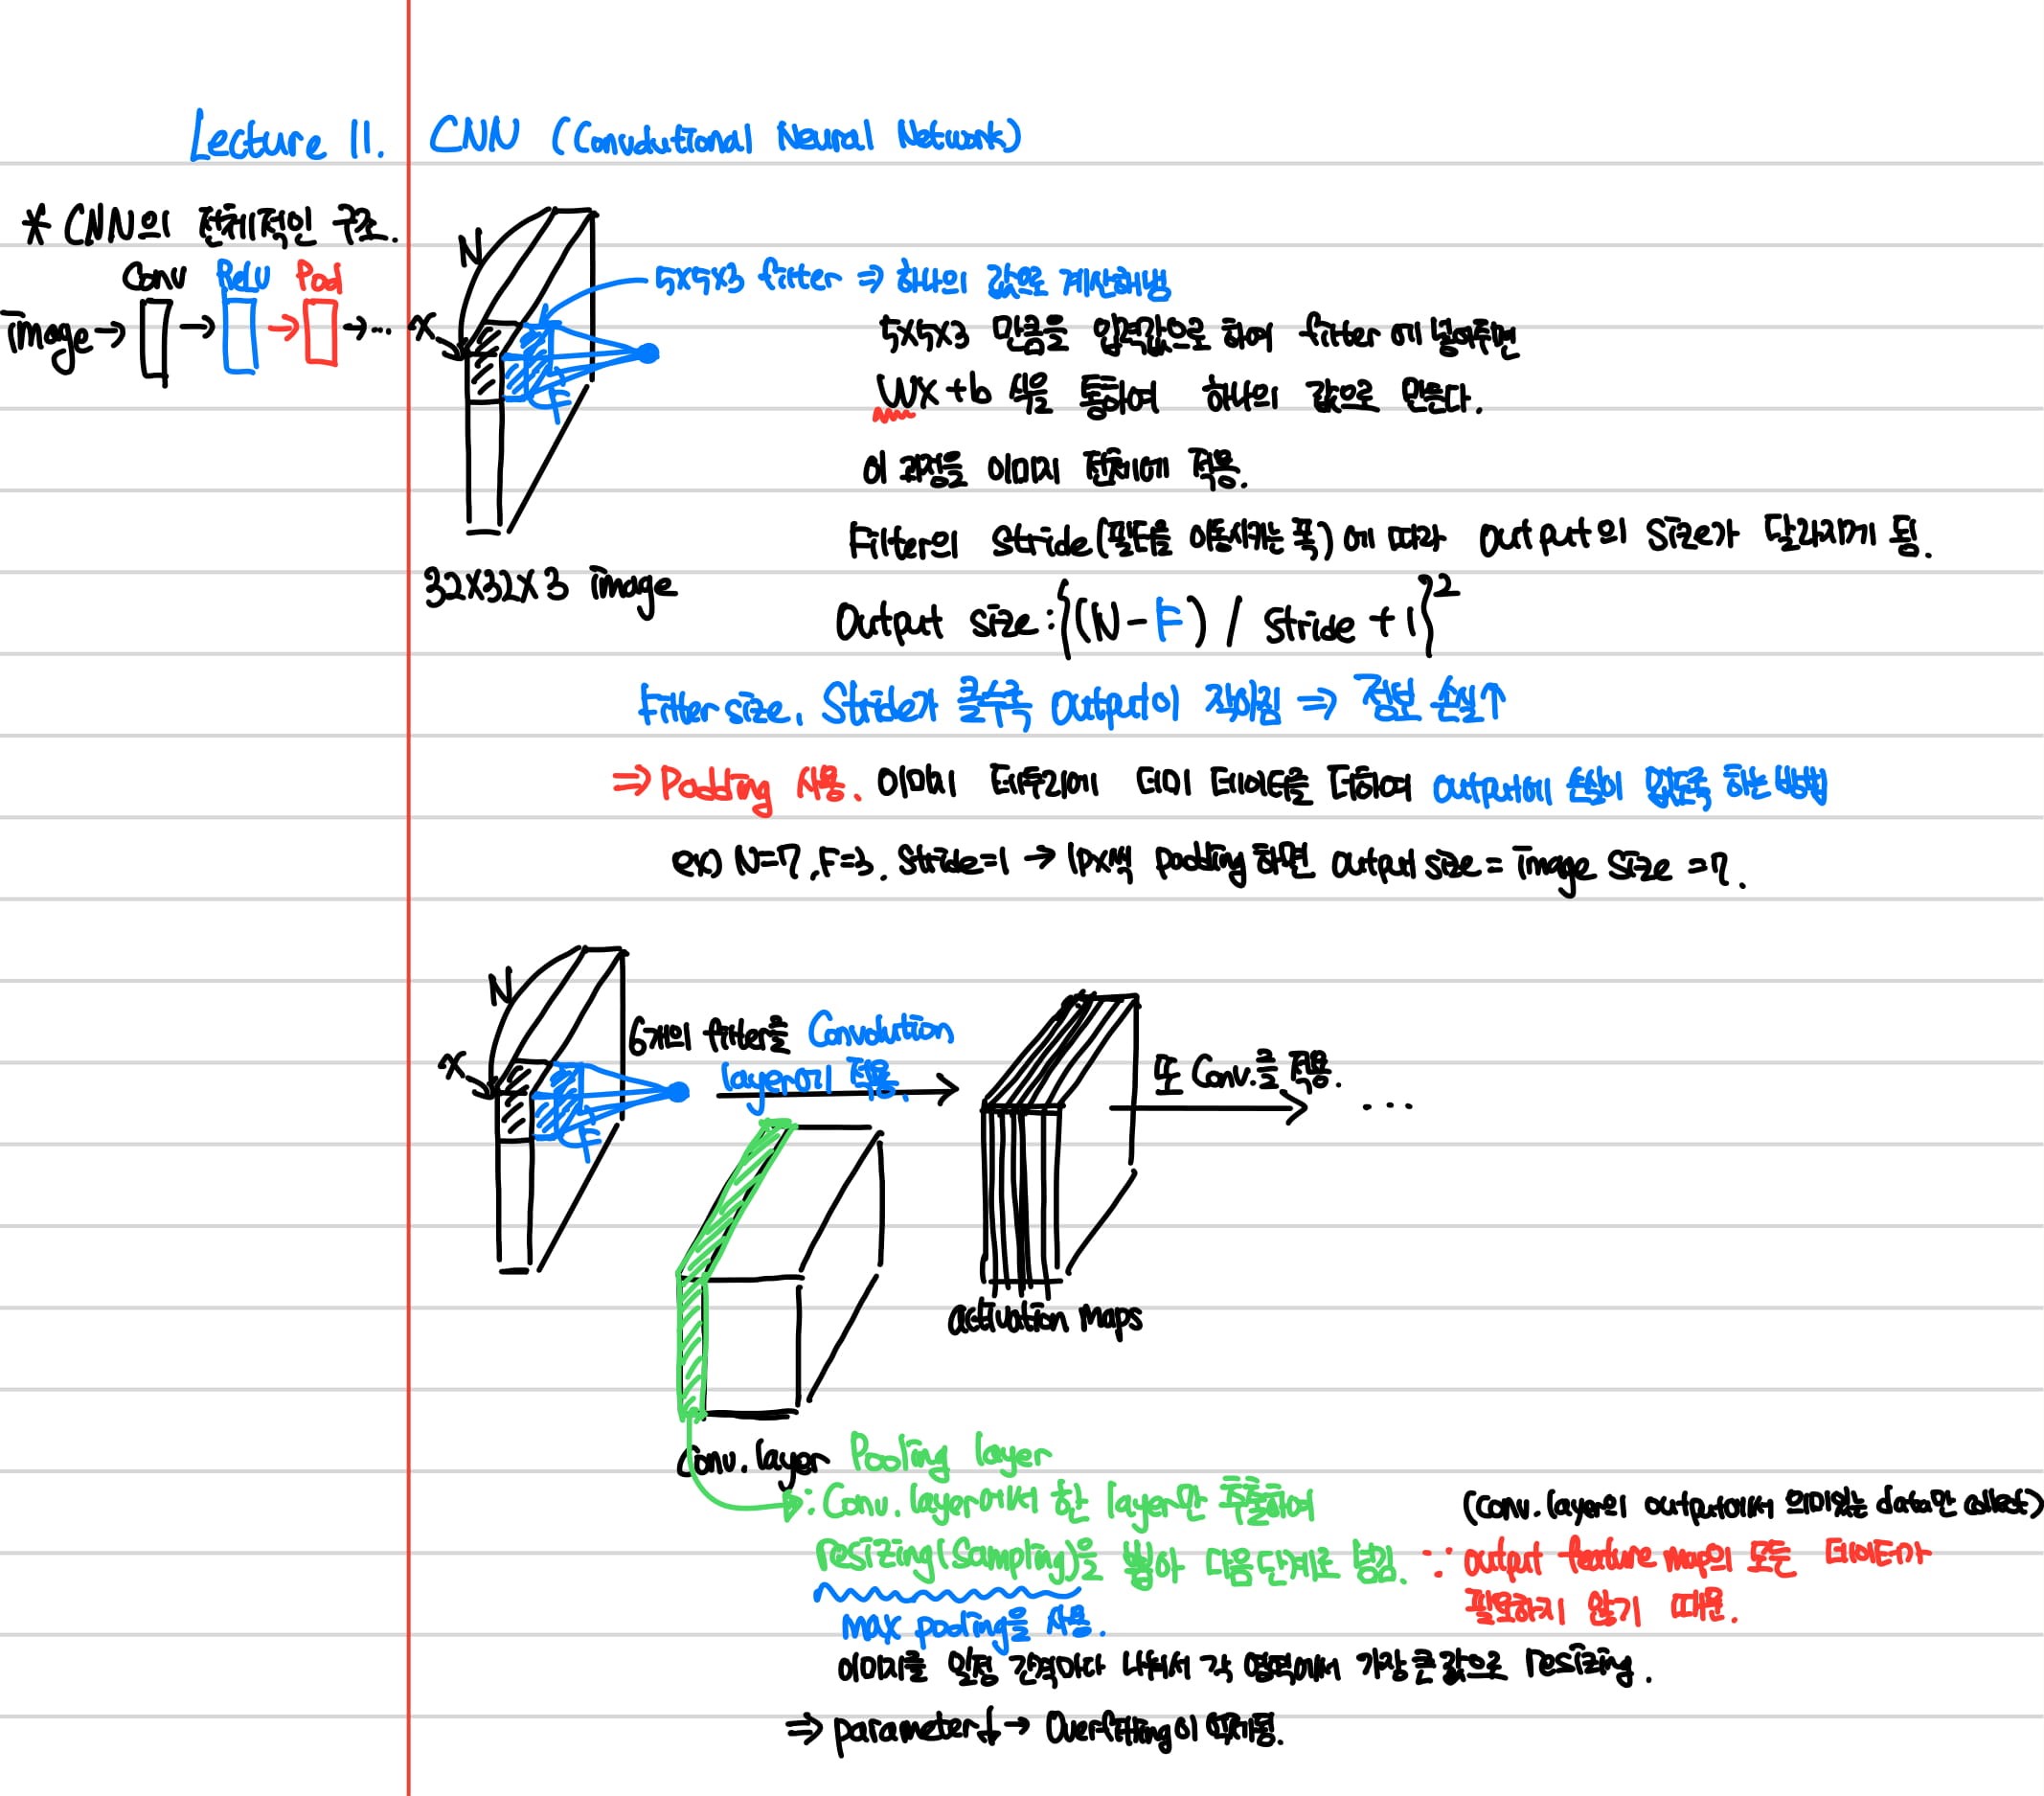 Lecture 11. CNN (Convolutional Neural Network)
* CNN의 전체적인 구조.
Conv ReLU Pool
image → → → → ...
N
X
F
5x5x3 filter ⇒ 하나의 값으로 계산해냄
5x5x3 만큼을 입력값으로 하여 filter에 넣어주면
Wx+b 식을 통하여 하나의 값으로 만든다.
이 과정을 이미지 전체에 적용.
Filter의 Stride(필터를 이동시키는 폭)에 따라 output의 size가 달라지게 됨.
32x32x3 image
Output size: {(N-F) / stride +1}²
Filter size, Stride가 클수록 output이 작아짐 ⇒ 정보 손실↑
⇒ Padding 사용. 이미지 테두리에 더미 데이터를 더하여 output에 손실이 없도록 하는 방법
ex) N=7, F=3, Stride=1 → 1px씩 padding 하면 output size = image size = 7.
N
X
F
6개의 filter를 Convolution
layer에 적용.
또 Conv.를 적용.
...
activation maps
Conv. layer
Pooling layer
: Conv. layer에서 한 layer만 추출하여
resizing(Sampling)을 뽑아 다음단계로 넘김.
(Conv. layer의 output에서 의미있는 data만 collect)
∵ output feature map의 모든 데이터가
필요하지 않기 때문.
max pooling을 사용.
이미지를 일정 간격마다 나눠서 각 영역에서 가장 큰 값으로 resizing.
⇒ parameter↓ → Overfitting이 억제됨.